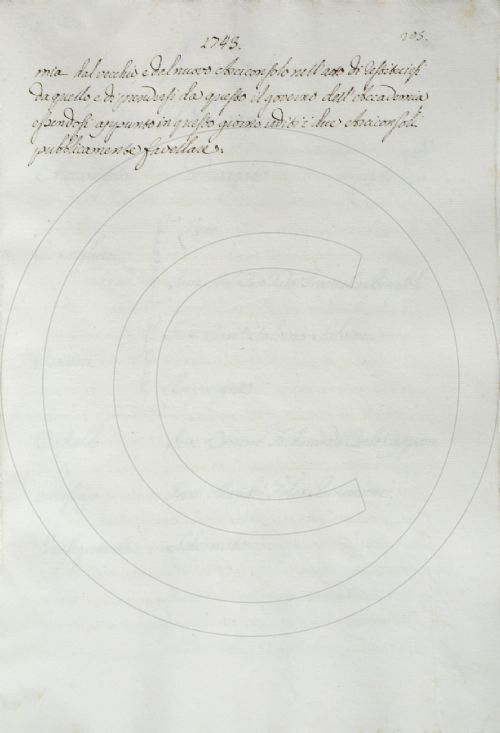 1743.
205.
mia dal vecchio e dal nuovo Arciconsolo nell'atto di
da quello e di prendersi da questo il governo dell'Accademia
essendosi appunto in questo giorno uditi i due Arciconsoli
pubblicamente favellare.